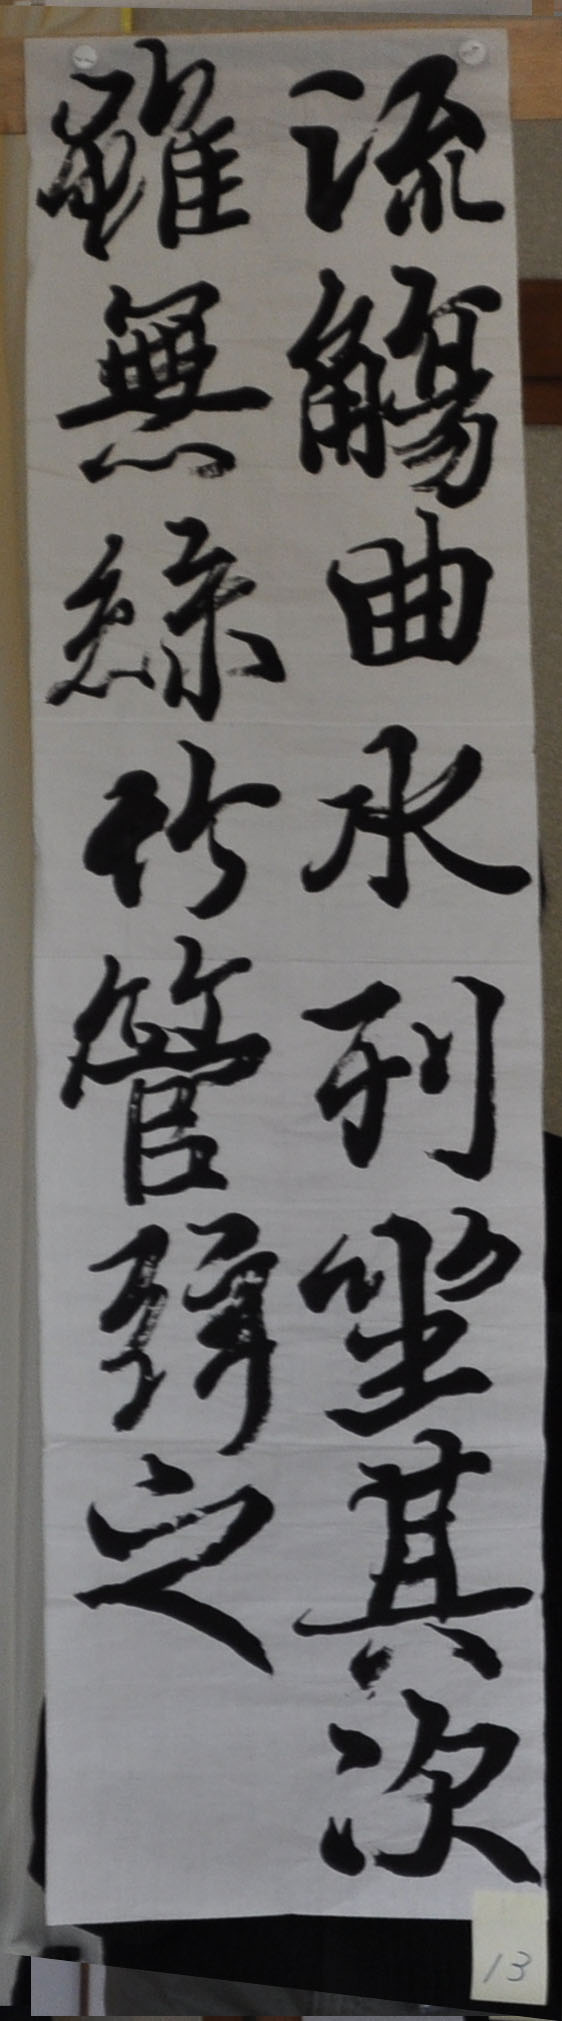 流觴曲水列坐其次
雖無絲竹管弦之
13